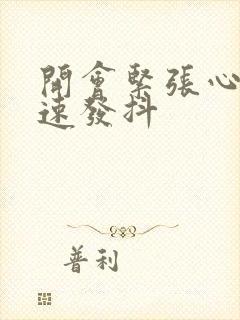 開會緊張心
速發抖
普利